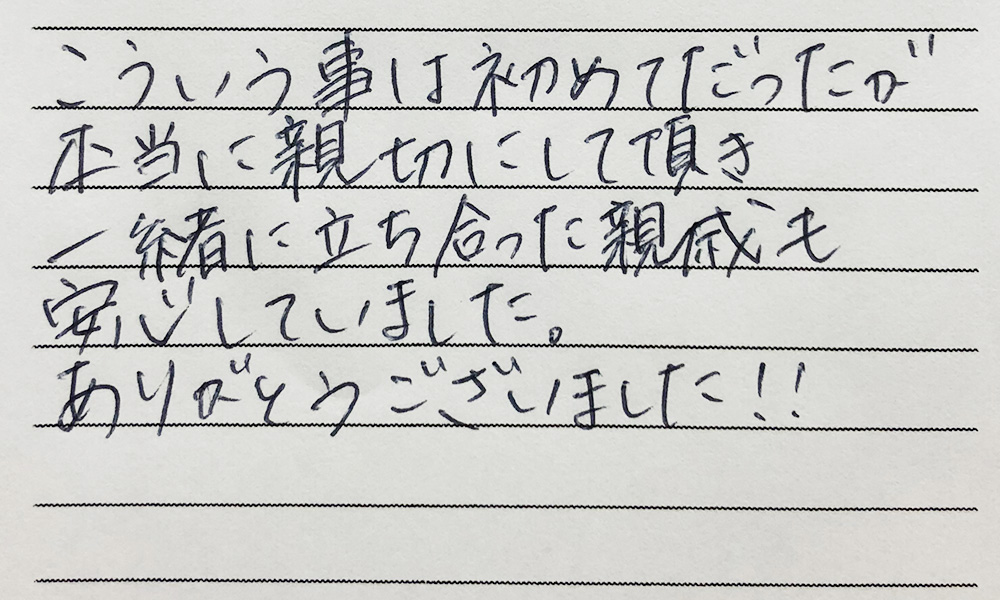 こういう事は初めてだったが
本当に親切にして頂き
一緒に立ち合った親戚も
安心していました。
ありがとうございました!!